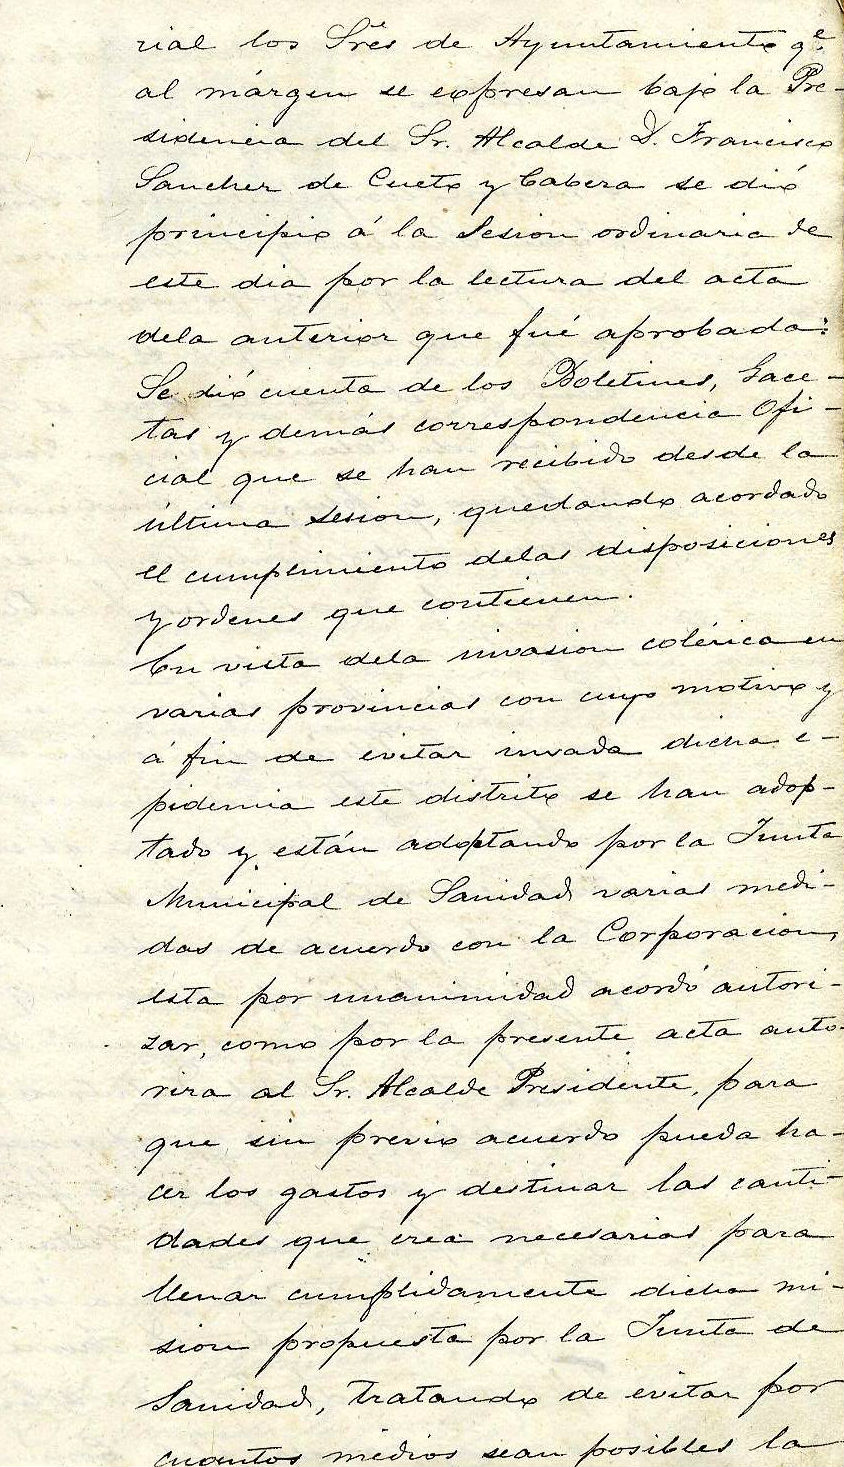 rial los Sres de Ayuntamiento qe.
al márgen se expresan bajo la Pre-
sidencia del Sr. Alcalde D. Francisco
Sanchez de Cueto y Cabeza se dió
principio á la Sesion ordinaria de
este dia por la lectura del acta
dela anterior que fué aprobada:
Se dió cuenta de los Boletines, Gace-
tas y demás correspondencia Ofi-
cial que se han recibido desde la
última sesion, quedando acordado
el cumplimiento delas disposiciones
y ordenes que contienen.
En vista dela invasion colérica en
varias provincias con cuyo motivo y
á fin de evitar invada dicha e-
pidemia este distrito se han adop-
tado y están adoptando por la Junta
Municipal de Sanidad varias medi-
das de acuerdo con la Corporacion,
esta por unanimidad acordó autori-
zar, como por la presente acta auto-
riza al Sr. Alcalde Presidente, para
que sin previo acuerdo pueda ha-
cer los gastos y destinar las canti-
dades que crea necesarias para
llenar cumplidamente dicha mi-
sion propuesta por la Junta de
Sanidad, tratando de evitar por
cuantos médios sean posibles la